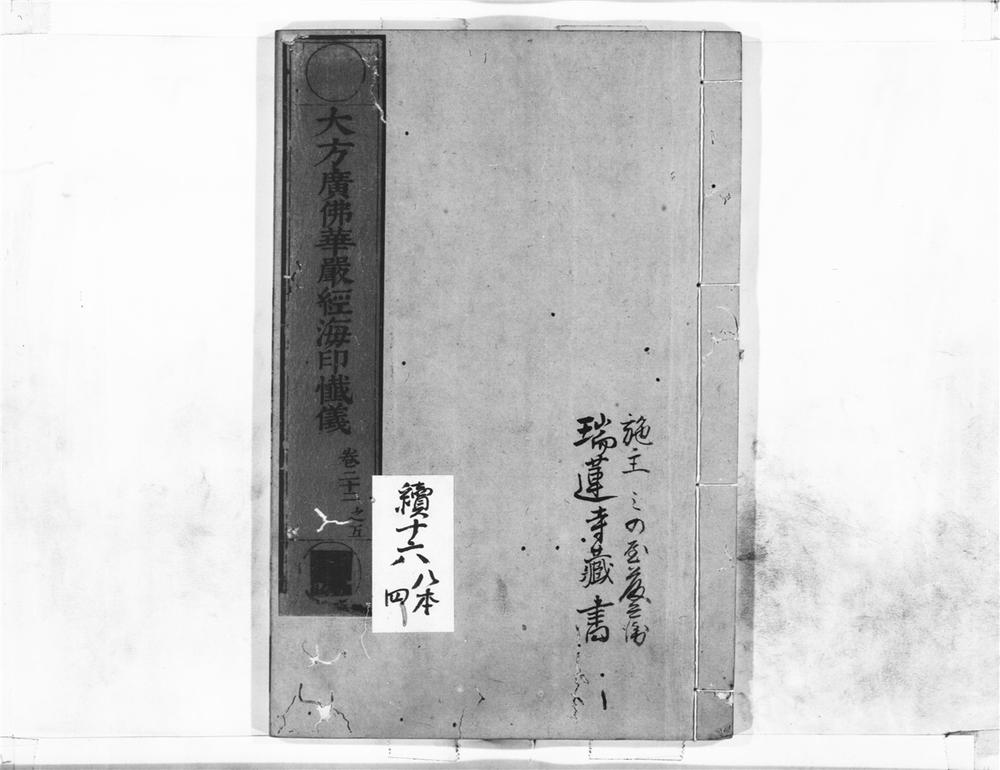 施主 ミの屋
瑞蓮寺藏書
續十六
八本
四
大方廣佛華嚴經海印懺儀
卷二十二之五